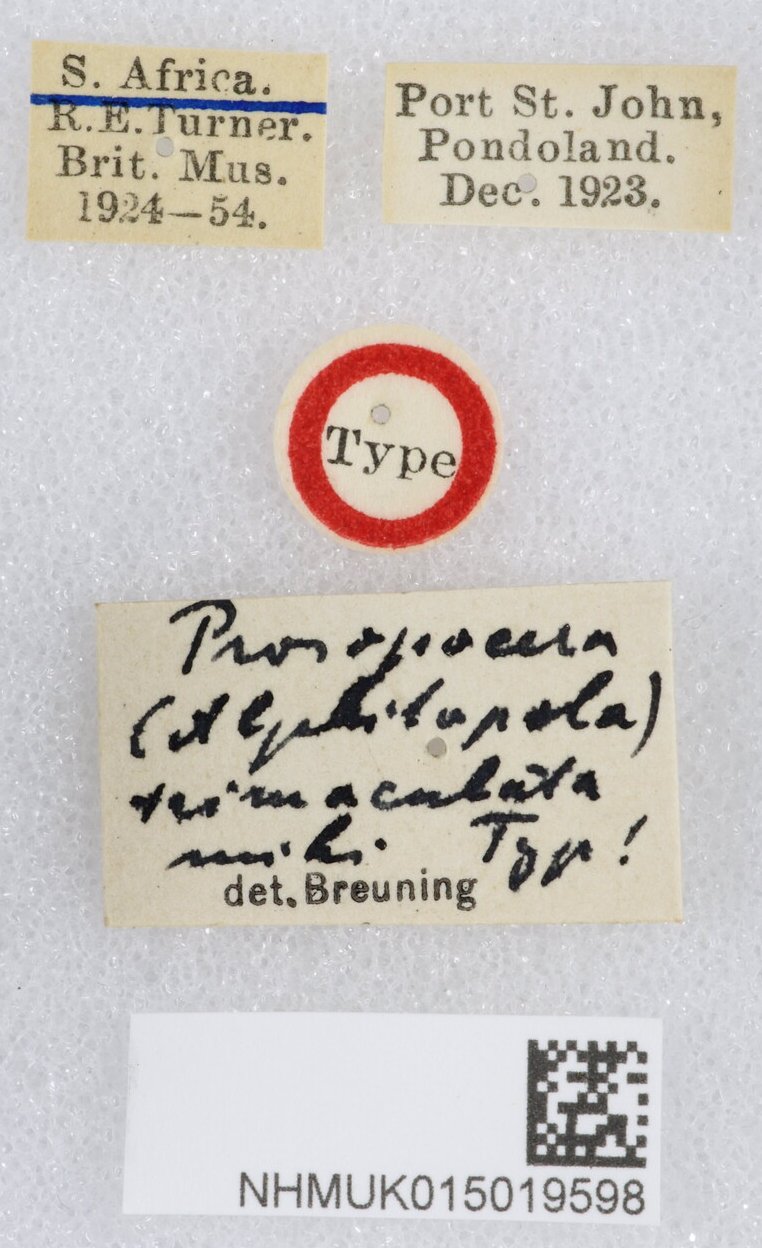 S. Africa.
R.E.Turner.
Brit. Mus.
1924—54.
Port St. John,
Pondoland.
Dec. 1923.
Type
Prosopocera
(Alphitopola)
trimaculata
mihi Typ!
det. Breuning
NHMUK015019598